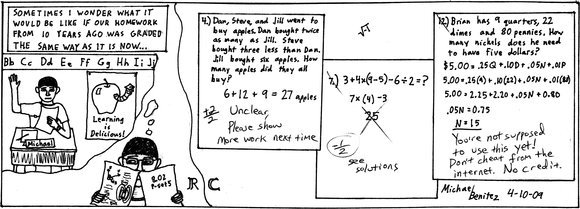 SOMETIMES I WONDER WHAT IT
WOULD BE LIKE IF OUR HOMEWORK
FROM 10 YEARS AGO WAS GRADED
THE SAME WAY AS IT IS NOW...
Bb Cc Dd Ee Ff Gg Hh Ii Jj
Learning
is
Delicious!
Michael
202
P-set 5
4.) Dan, Steve, and Jill went to
buy apples. Dan bought twice
as many as Jill. Steve
bought three less than Dan.
Jill bought six apples. How
many apples did they all
buy?
6+12+9=27 apples
Unclear,
Please show
more work next time.
RC
7.) 3+4×(9-5)-6÷2=?
7×(4)-3
25
see
solutions
12) Brian has 9 quarters, 22
dimes and 80 pennies. How
many nickels does he need
to have five dollars?
$5.00=.25Q+.10D+.05N+.01P
5.00=.25(9)+.10(22)+.05N+.01(80)
5.00=2.25+2.20+.05N+0.80
.05N=0.75
N=15
You're not supposed
to use this yet!
Don't cheat from the
internet. No credit.
Michael
Benitez 4-10-09